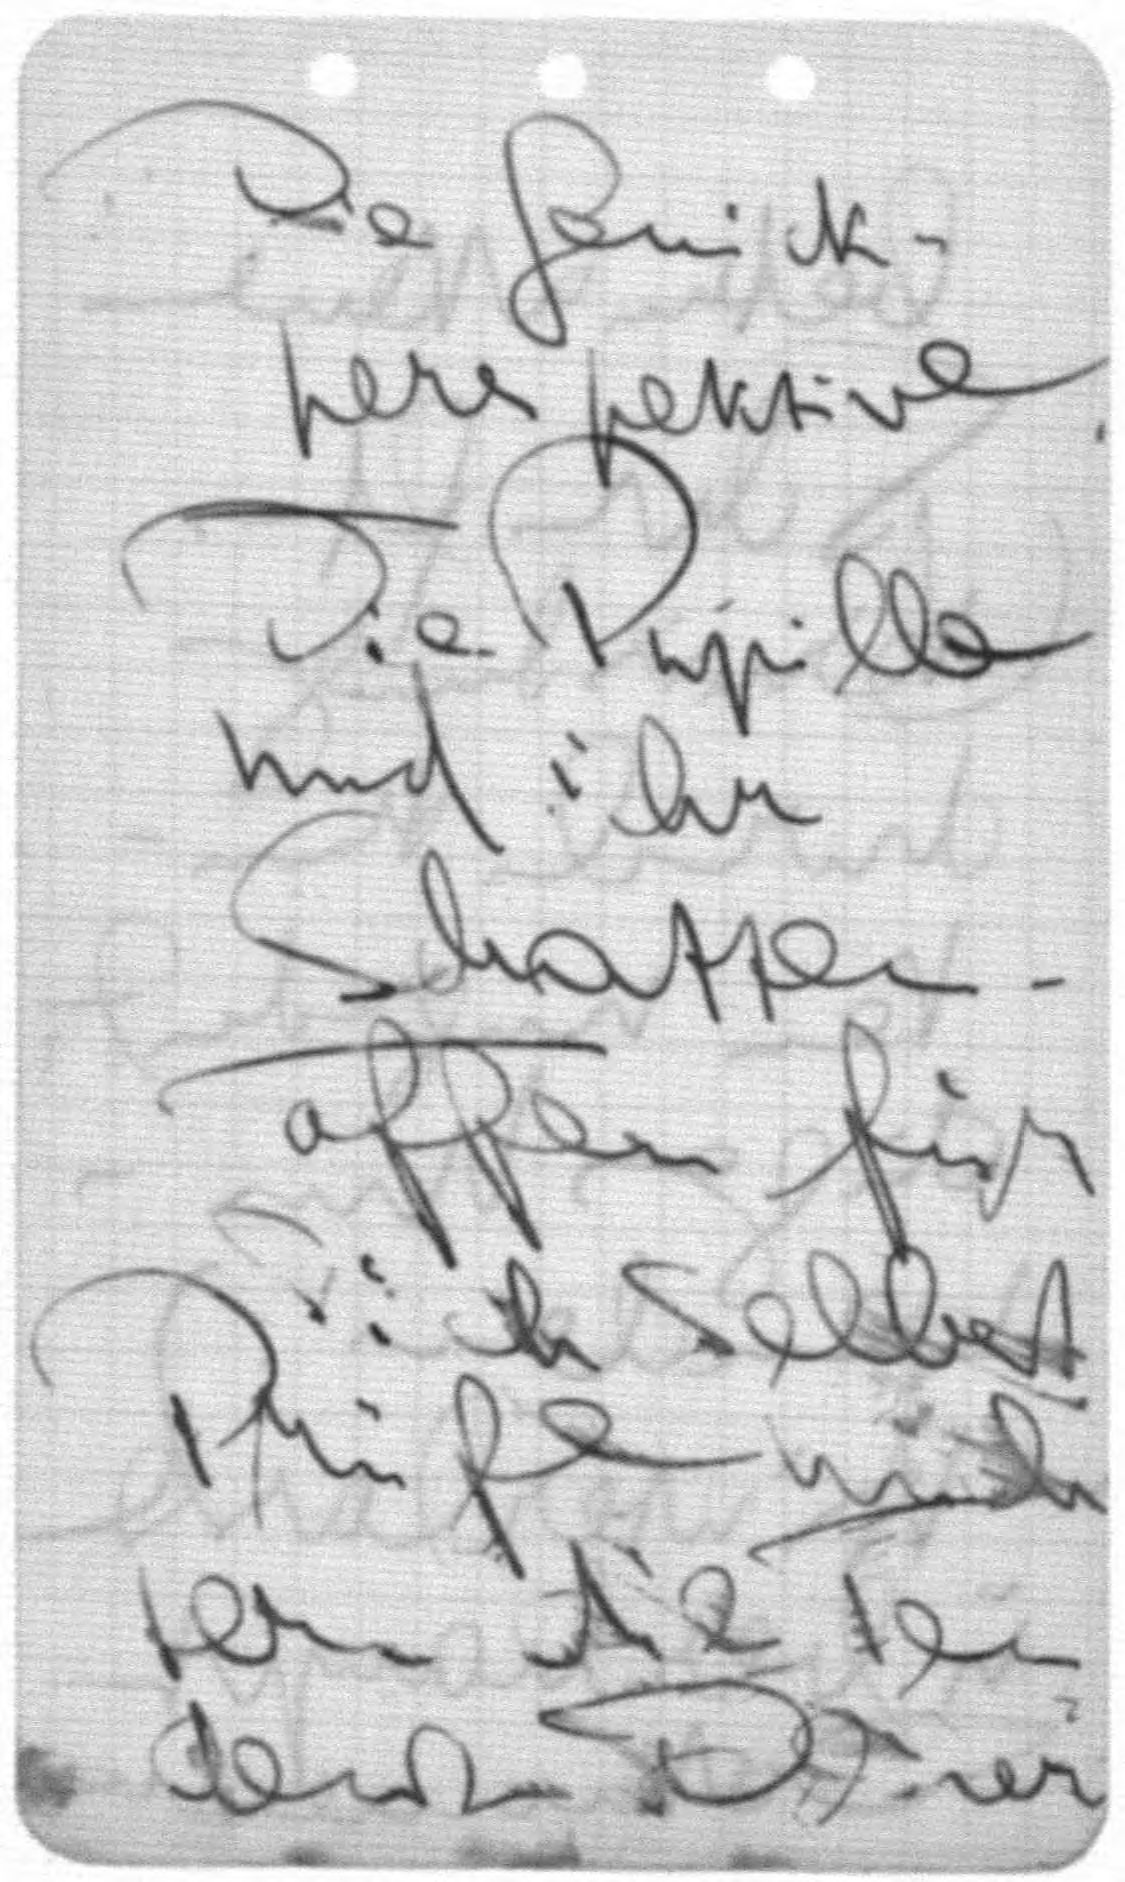 Die Genick-
perspektive.
Die Pupille
und ihr
Schatten-
Taffen für
sich selbst
Prüfe nüch
tern die Ten
denzen